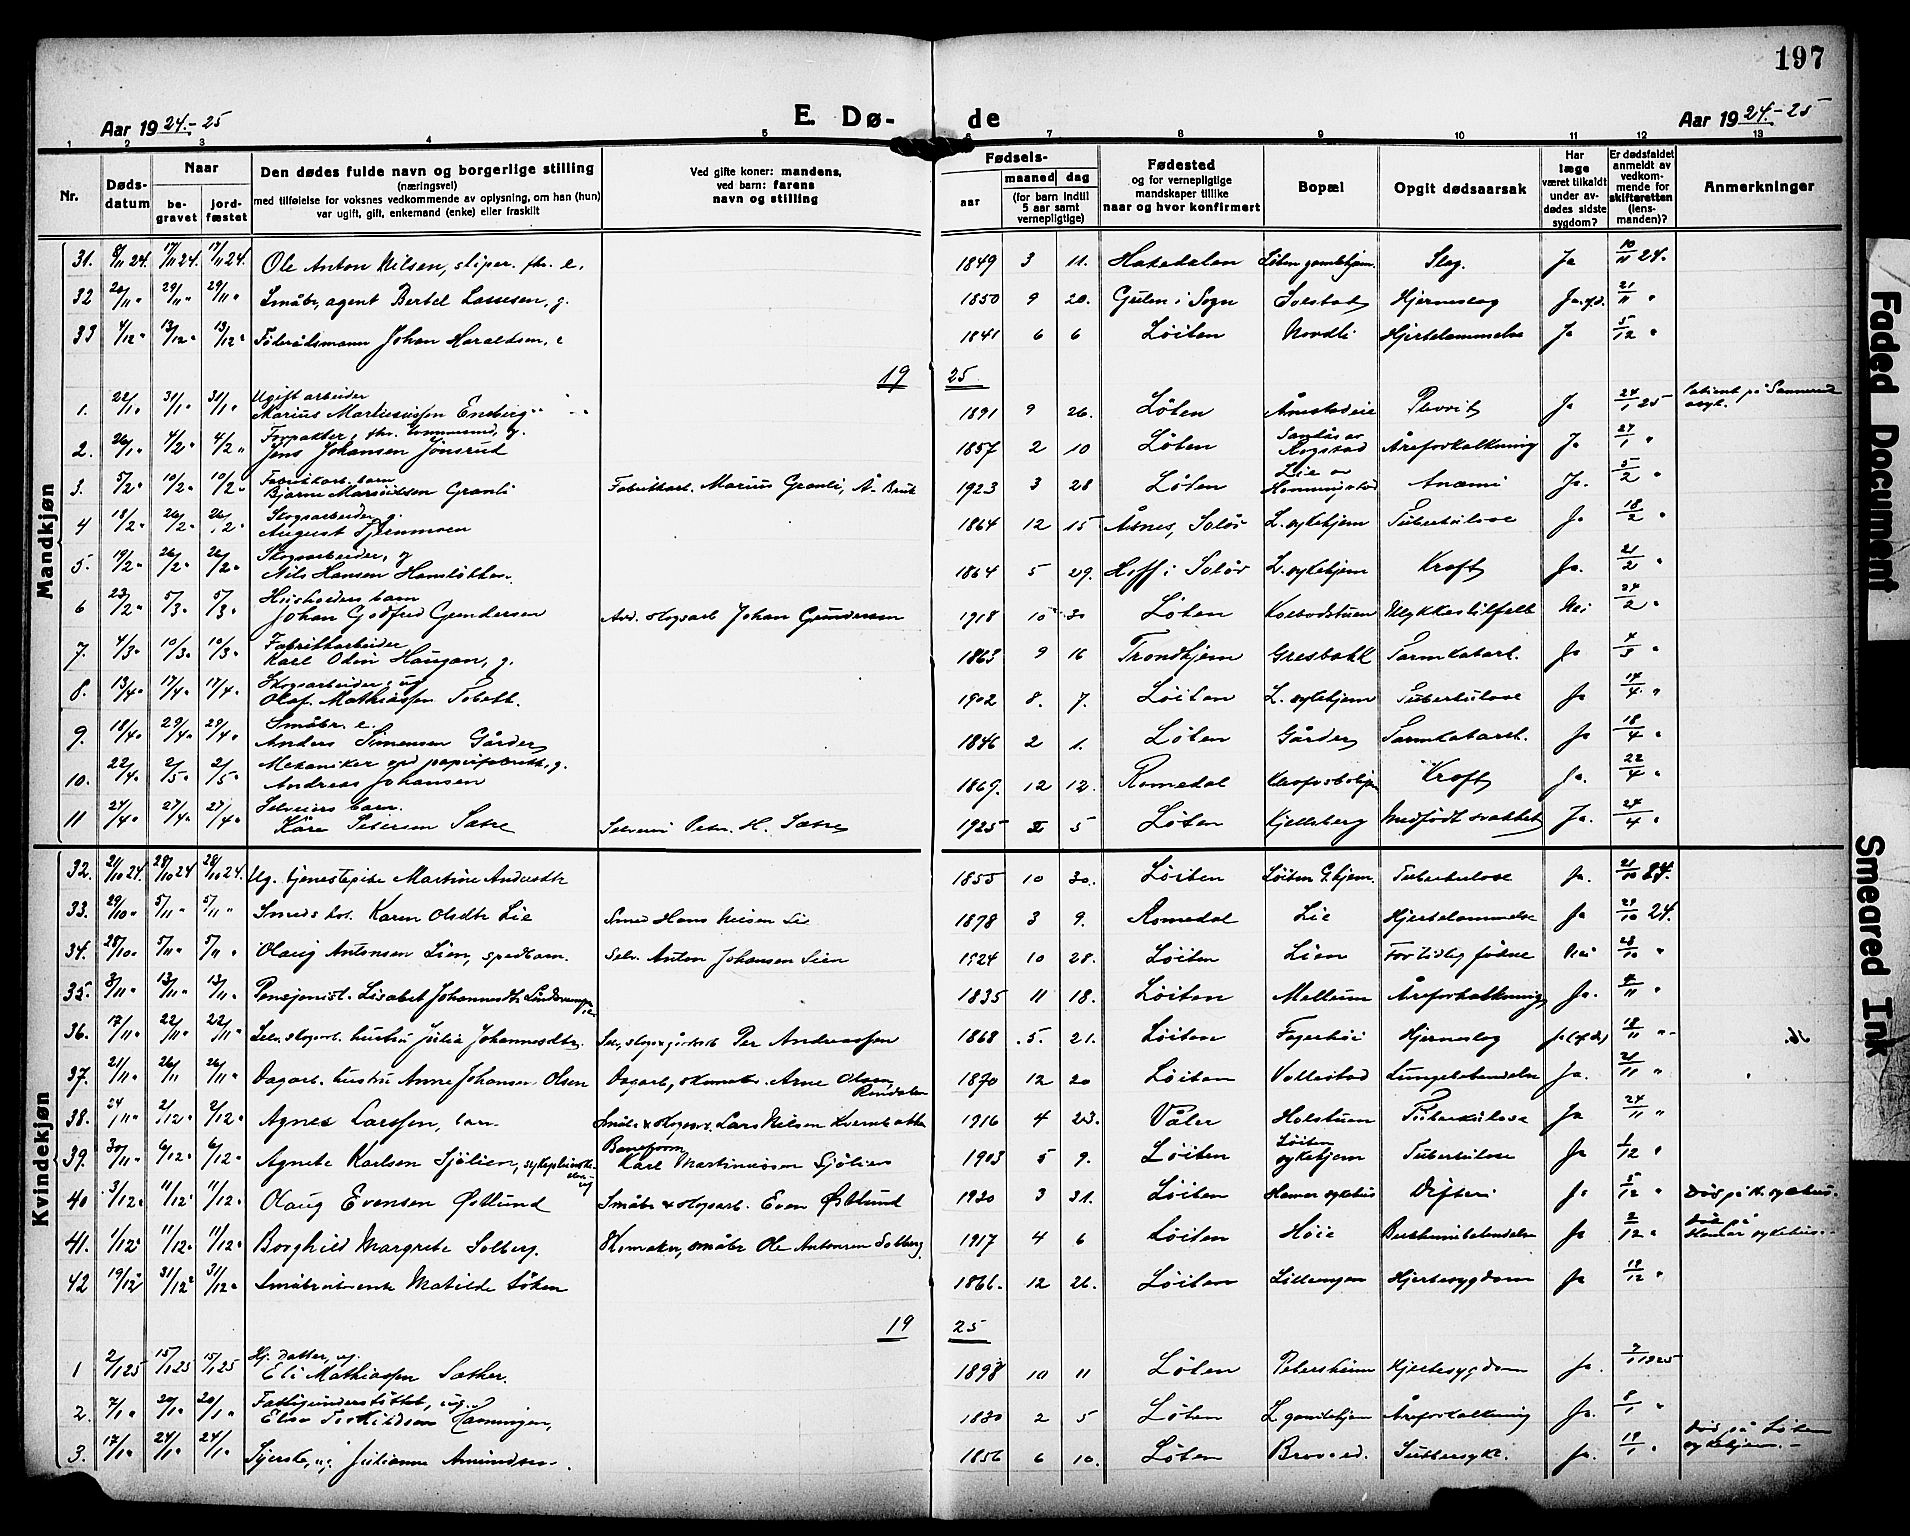 197
Aar 1924.-25
E. Dø-
de
Aar 1924.-25
1 2 3 4 5 6 7 8 9 10 11 12 13
Nr.
Døds-
datum
Naar
be-
gravet
jord-
fæstet
Den dødes fulde navn og borgerlige stilling
(næringsvei)
med tilføielse for voksnes vedkommende av oplysning, om han (hun)
var ugift, gift, enkemand (enke) eller fraskilt
Ved gifte koner: mandens,
ved barn: farens
navn og stilling
Fødsels-
aar
maaned dag
(for barn indtil
5 aar samt
vernepligtige)
Fødested
og for vernepligtige
mandskaper tillike
naar og hvor konfirmert
Bopæl
Opgit dødsaarsak
Har
læge
været tilkaldt
under av-
dødes sidste
sygdom?
Er dødsfaldet
anmeldt av
vedkom-
mende for
skifteretten
(lens-
manden)?
Anmerkninger
Mandkjøn
31. 8/11 24. 17/11 24. 17/11 24. Ole Anton Nilsen, sliper. fhv. e. 1849 3 11. Hakedalen Løten gamlehjem. Slag. Ja 10/11 24.
32 20/11 " 29/11 " 29/11 " Småbr, agent Bertel Lassesen, g. 1850 9 20. Gulen i Sogn Solstad Hjerneslag 21/11 "
33 4/12 " 13/12 " 13/12 " Føderådsmann Johan Haraldsen, e 1841 6 6 Løiten Nordli Hjertelammelse Ja 5/12 "
19 25
1. 22/1 " 31/1 " 31/1 " Ugift arbeider
Marius Martinussen Eneberg 1891 9 26. Løten Ånestadeie Plevrit Ja 24/1 25 Patient på Sanderud
asyl.
2. 26/1 " 4/2 " 4/2 " Forpakter, fhv. g.
Jens Johansen Jønsrud 1857 2 10 Løten Rogstad Åreforkalkning Ja 27/1 "
3. 5/2 " 10/2 " 10/2 " Fabrikkarb. barn
Bjarne Mariussen Granli Fabrikkarb. Marius Granli, Å- Bruk 1923 3 28 Løten Lie av
Anæmi Ja. 5/2 "
4 18/2 " 26/2 " 26/2 " Skogsarbeider, g.
August Tjernmoen 1864 12 15 Åsnes, Solør L. sykehjem Tuberkulose Ja 18/2 "
5. 19/2 " 26/2 " 26/2 " Skogsarbeider, g
Nils Hansen 1864 5 29. Hoff i Solør L. sykehjem Kræft Ja. 21/2 "
6 23/2 " 5/3 " 5/3 " barn
Johan Godfred Gundersen Arb. skogsarb Johan Gundersen 1918 10 30 Løten Kolbodstuen Ulykkestilfelle Nei 24/2 "
7. 4/3 " 10/3 " 10/3 " Fabrikkarbeider
Karl Odin Haugan, g. 1863 9 16 Trondhjem Gresbakk Tarmkatarh. Ja 4/3 "
8. 13/4 " 17/4 " 17/4 " Skogsarbeider, ug
Olaf Mathiassen 1902 8. 7. Løiten L. sykehjem Tuberkulose Ja 14/4 "
9. 18/4 " 29/4 " 29/4 " Småbr. e.
Anders Simensen Gårder 1846 2 1. Løten Gårder Tarmkatarh. Ja 18/4 "
10. 22/4 " 2/5 " 2/5 " Mekaniker ved papirfabrikk, g.
Andreas Johansen 1869. 12 12. Romedal Kræft Ja. 22/4 "
11 24/4 " 27/4 " 27/4 " Selveiers barn.
Kåre Petersen Sætre Selveier Petr. H. Sætre 1925 5 Løten Kjelleberg Medfødt svakhet Ja. 24/4 "
Kvindekjøn
32. 21/10 24. 28/10 24 28/10 24. Ug. tjenestepike Martine Andersdtr 1855 10 30. Løiten Løiten G.hjem. Tuberkulose Ja. 21/10 24.
33. 29/10 " 5/11 " 5/11 " Smeds kone. Karen Olsdtr Lie Smed Hans Nilsen Lie 1878 3 9. Romedal Lie Hjertelammelse Ja 29/10 24.
34. 28/10 " 5/11 " 5/11 " Olaug Antonsen Lien, spedbarn. Selv. Anton Johansen Lien 1924 10 28. Løiten Lien For tidlig fødsel Nei 28/10 "
35. 3/11 " 13/11 " 13/11 " Pensjonist. Lisabet Johannesdtr 1835 11 18. Løiten Mellum Åreforkalkning Ja. 4/11 "
36. 17/11 " 22/11 " 22/11 " Selv. skogarb. hustru Julie Johannesdtr. Per Andreassen 1868 5. 21. Løiten Fagerhøi Hjerneslag 18/11 "
37. 21/11 " 26/11 26/11 " Dagarb. hustru Anne Johansen Olsen Dagarb, skomak. Arne Olsen
Rindalen 1870 12 20 Løiten Vollestad Lungebetendelse Ja. 21/11 "
38. 24/11 " 2/12 " 2/12 " Agnes Larssen, barn Småbr & skogsarb. Lars Nilsen Kvernbakken 1916 4 23. Våler Holstuen Tuberkulose Ja 24/11 "
39. 30/11 " 6/12 " 6/12 " Agnete Karlsen Sjølien, Baneform
Karl Martiniusen Sjølien 1903 5 9. Løiten Løiten
sykehjem Tuberkulose Ja 1/12 "
40 3/12 " 11/12 " 11/12 " Olaug Evensen Østlund Småbr & skogsarb. Even Østlund 1920 3 31. Løiten Hamar sykehus Difteri Ja 5/12 " Død på H. sykehus.
41. 1/12 " 11/12 " 11/12 " Borghild Margrete Solberg. Skomaker, småbr Ole Antonsen Solberg 1917 4 6 Løiten Høie Ja 2/12 " Død på
Hamar sykehus.
42 19/12 " 31/12 " 31/12 " Matilde Løken 1866. 12 26. Løiten Lillengen Hjertesygdom Ja 19/12 "
19 25
1 2/1 25 15/1 25 15/1 25 Hj. datter, ug.
Eli Mathiassen Sæther. 1898 10 11 Løten Petersheim Hjertesygdom Ja. 7/1 1925
2. 7/1 " 20/1 " 20/1 " Fattigunderstøttet, ug.
Elise 1830 2 5 Løten L gamlehjem Åreforkalkning Ja. 8/1 "
3. 17/1 " 24/1 " 24/1 " Julianne Amundsen. 1856 6 10. Løten Sukkersyke. Ja. 19/1 " Død på Løten
sykehjem.
Faded Document
Smeared Ink